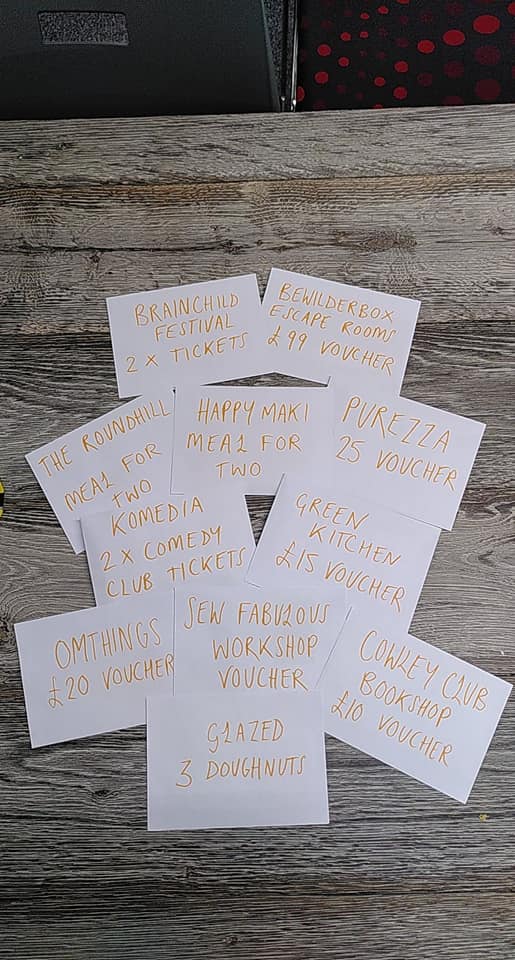 BRAINCHILD
FESTIVAL
2 X TICKETS
BEWILDERBOX
ESCAPE ROOMS
£99 VOUCHER
THE ROUNDHILL
MEAL FOR
TWO
HAPPY MAKI
MEAL FOR
TWO
PUREZZA
25 VOUCHER
KOMEDIA
2 X COMEDY
CLUB TICKETS
GREEN
KITCHEN
£15 VOUCHER
OMTHINGS
£20 VOUCHER
SEW FABULOUS
WORKSHOP
VOUCHER
COWLEY CLUB
BOOKSHOP
£10 VOUCHER
GLAZED
3 DOUGHNUTS